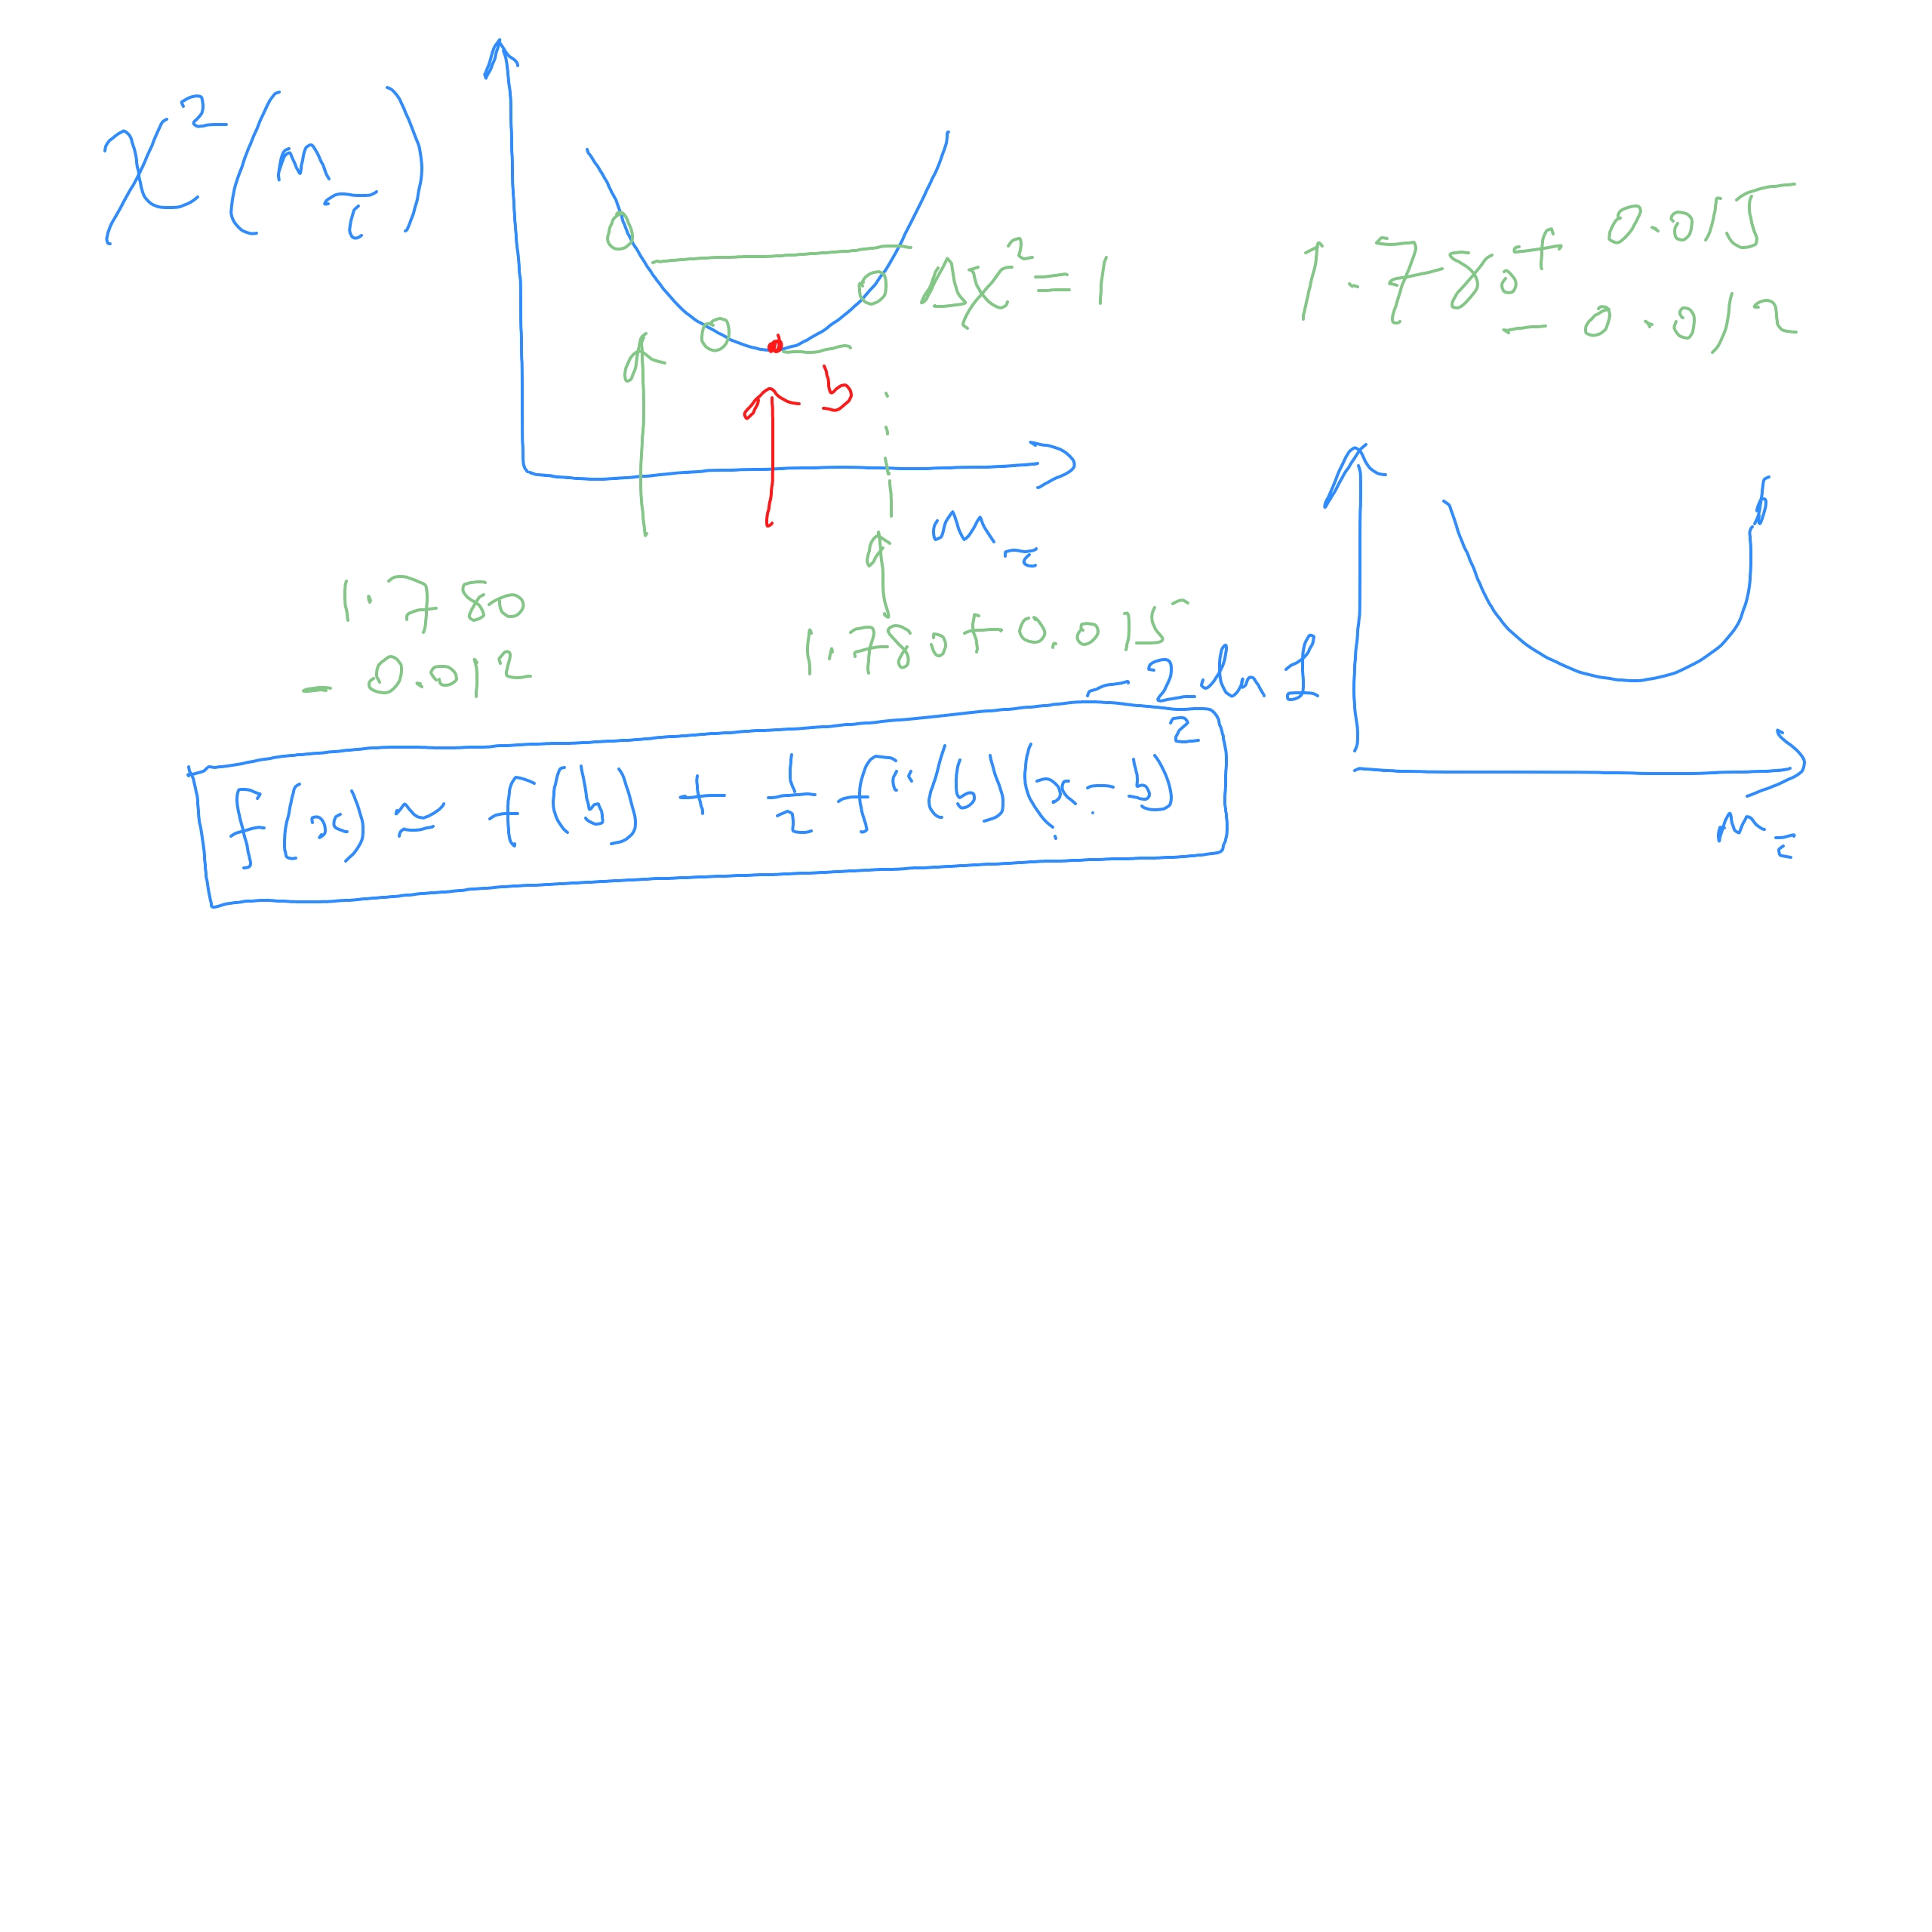 χ²(m_τ)
Δχ² = 1
1.780 + 0.015
- 0.012
b
m_τ
1.780
- 0.012
1.780 + 0.015
-2 ln L
f(x) ≈ f(b) + 1/2 f''(b) (x - b)²
m_τ